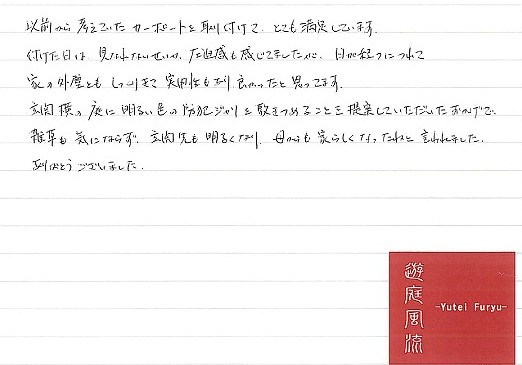 以前から考えていたカーポートを取り付けて、とても満足しています。
付けた日は、見なれないせいか、圧迫感も感じてましたが、日が経つにつれて
家の外壁ともしっくりきて実用性もあり良かったと思ってます。
玄関横の庭に明るい色の防犯ジャリを敷きつめることを提案していただいたおかげで、
雑草も気にならず、玄関先も明るくなり、母からも家らしくなったねと言われました。
ありがとうございました。
遊庭風流
-Yutei Furyu-